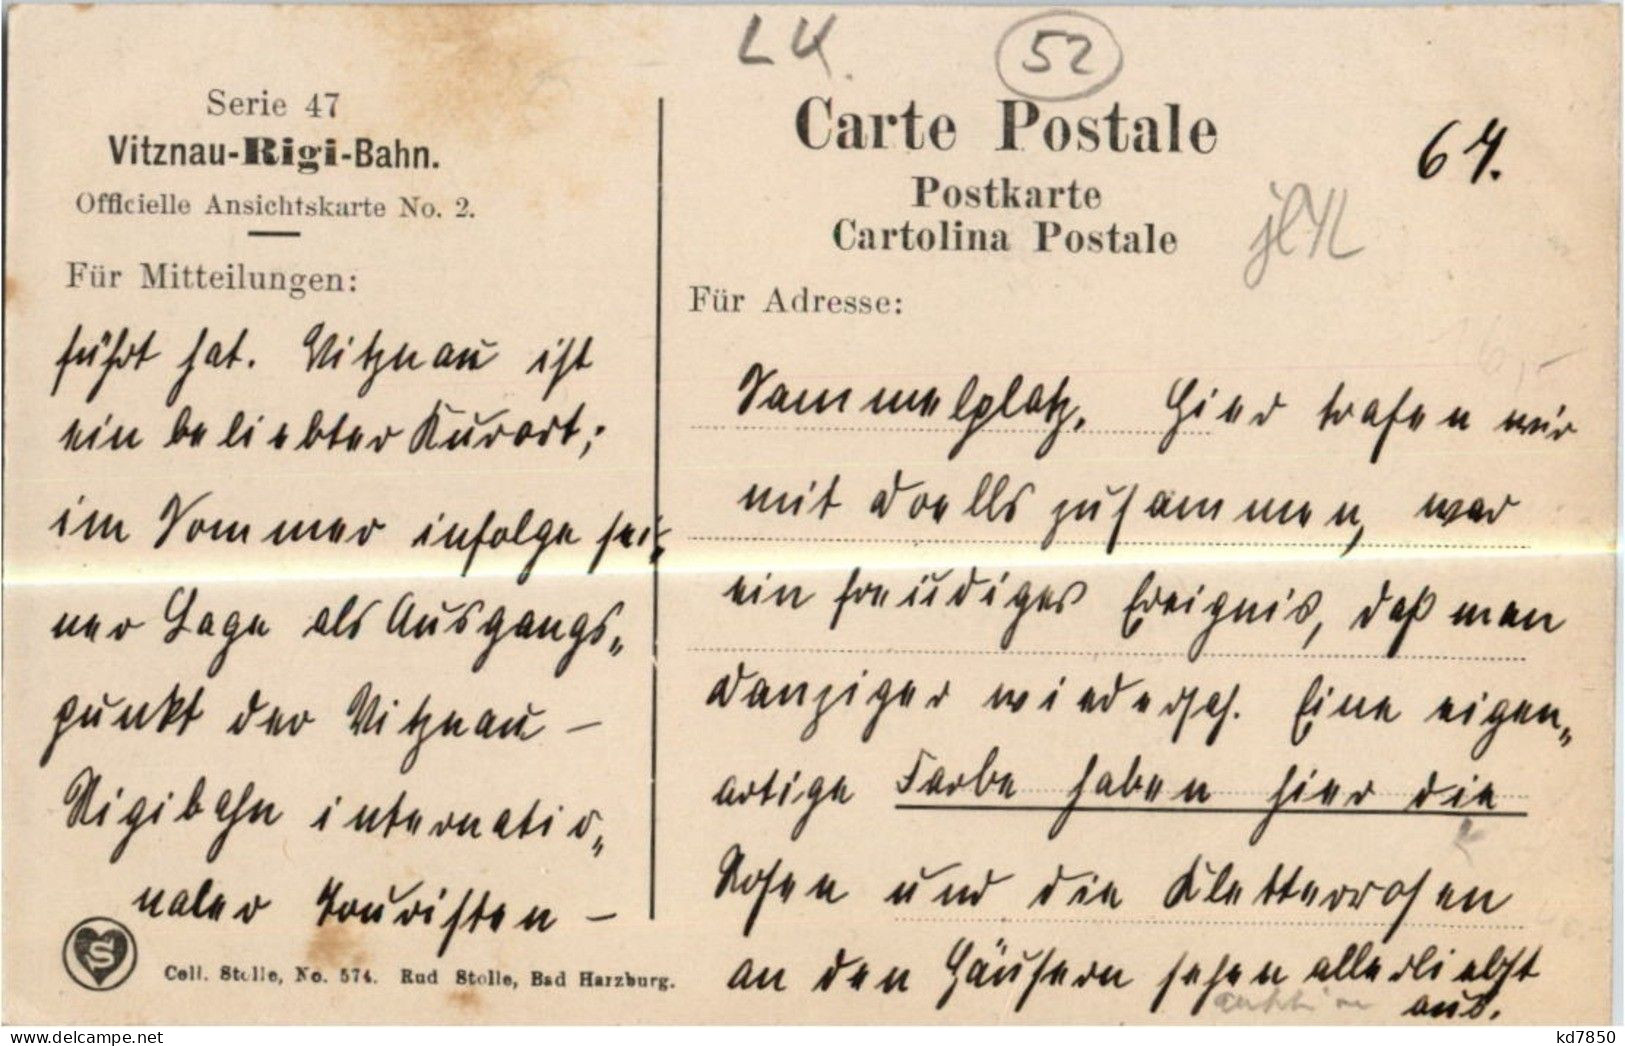 LU.
52
Serie 47
Vitznau-Rigi-Bahn.
Officielle Ansichtskarte No. 2.
Für Mitteilungen:
führt hat. Vitznau ist
ein beliebter Kurort;
im Sommer infolge sei-
ner Lage als Ausgangs-
punkt der Vitznau –
Rigibahn internatio-
naler Touristen –
Coll. Stolle, No. 574. Rud Stolle, Bad Harzburg.
Carte Postale
Postkarte
Cartolina Postale
67.
Für Adresse:
Sammelplatz. Hier trafen wir
mit Doells zusammen, war
ein freudiges Ereignis, daß man
Danziger wiedersah. Eine eigen-
artige Farbe haben hier die
Rosen und die Kletterrosen
an den Häusern sehen allerliebst
aus.
kd7850